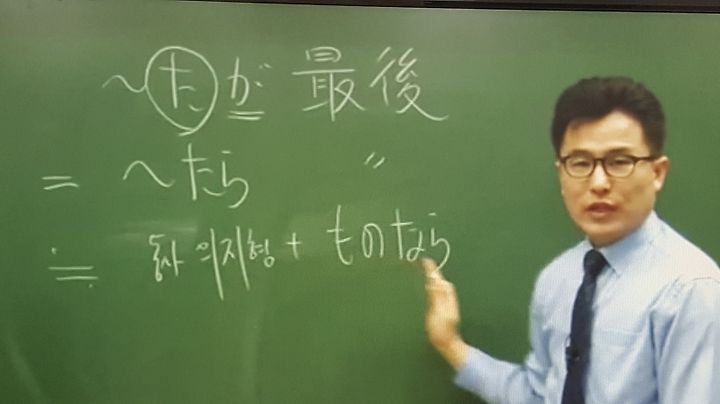 ~たが 最後
= ~たら 〃
≒ 동사 의지형 + ものなら